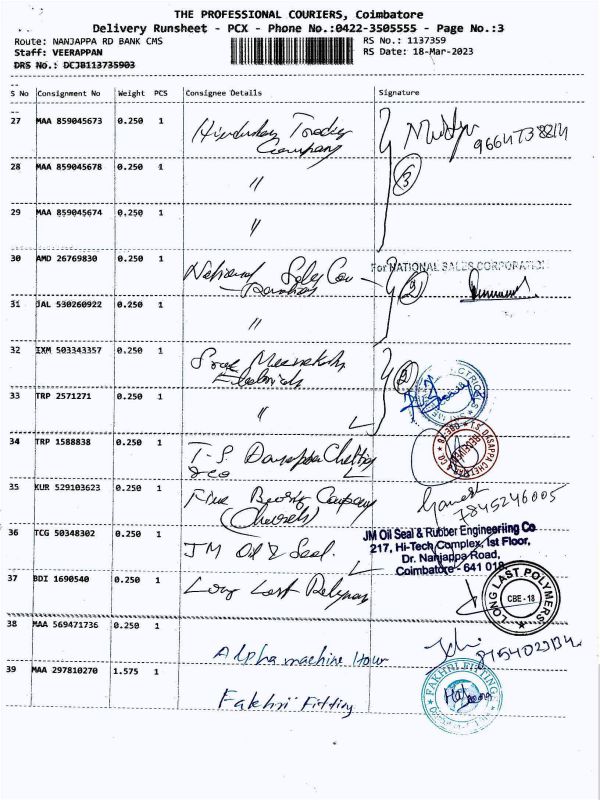 THE PROFESSIONAL COURIERS, Coimbatore
Delivery Runsheet - PCX - Phone No.:0422-3505555 - Page No.:3
Route: NANJAPPA RD BANK CMS RS No.: 1137359
Staff: VEERAPPAN RS Date: 18-Mar-2023
DRS No.: DCJB113735903
S No Consignment No Weight PCS Consignee Details Signature
27 MAA 859045673 0.250 1 Hindustan Trading
Company
9664738814
28 MAA 859045678 0.250 1 "
3
29 MAA 859045674 0.250 1 "
30 AMD 26769830 0.250 1 National Sales Co
For NATIONAL SALES CORPORATION
2
31 JAL 530260922 0.250 1 "
32 IXM 503343357 0.250 1 Sree Meenakshi
Electricals
2
33 TRP 2571271 0.250 1 "
34 TRP 1588838 0.250 1 T.S Dasappa Chettiar
T.S. DASAPPA CHETTIAR
35 KUR 529103623 0.250 1 Fine Company
(Church)
Ganesh
7845246005
36 TCG 50348302 0.250 1 JM Oil & Seal.
JM Oil Seal & Rubber Engineeriing Co
217, Hi-Tech Complex, 1st Floor,
Dr. Nanjappa Road,
Coimbatore - 641 018
37 BDI 1690540 0.250 1 Long Last Polymers
LONG LAST POLYMERS
CBE - 18
38 MAA 569471736 0.250 1
Alpha machine Hour
39 MAA 297810270 1.575 1
Fakhri Fitting
FAKHRI FITTING